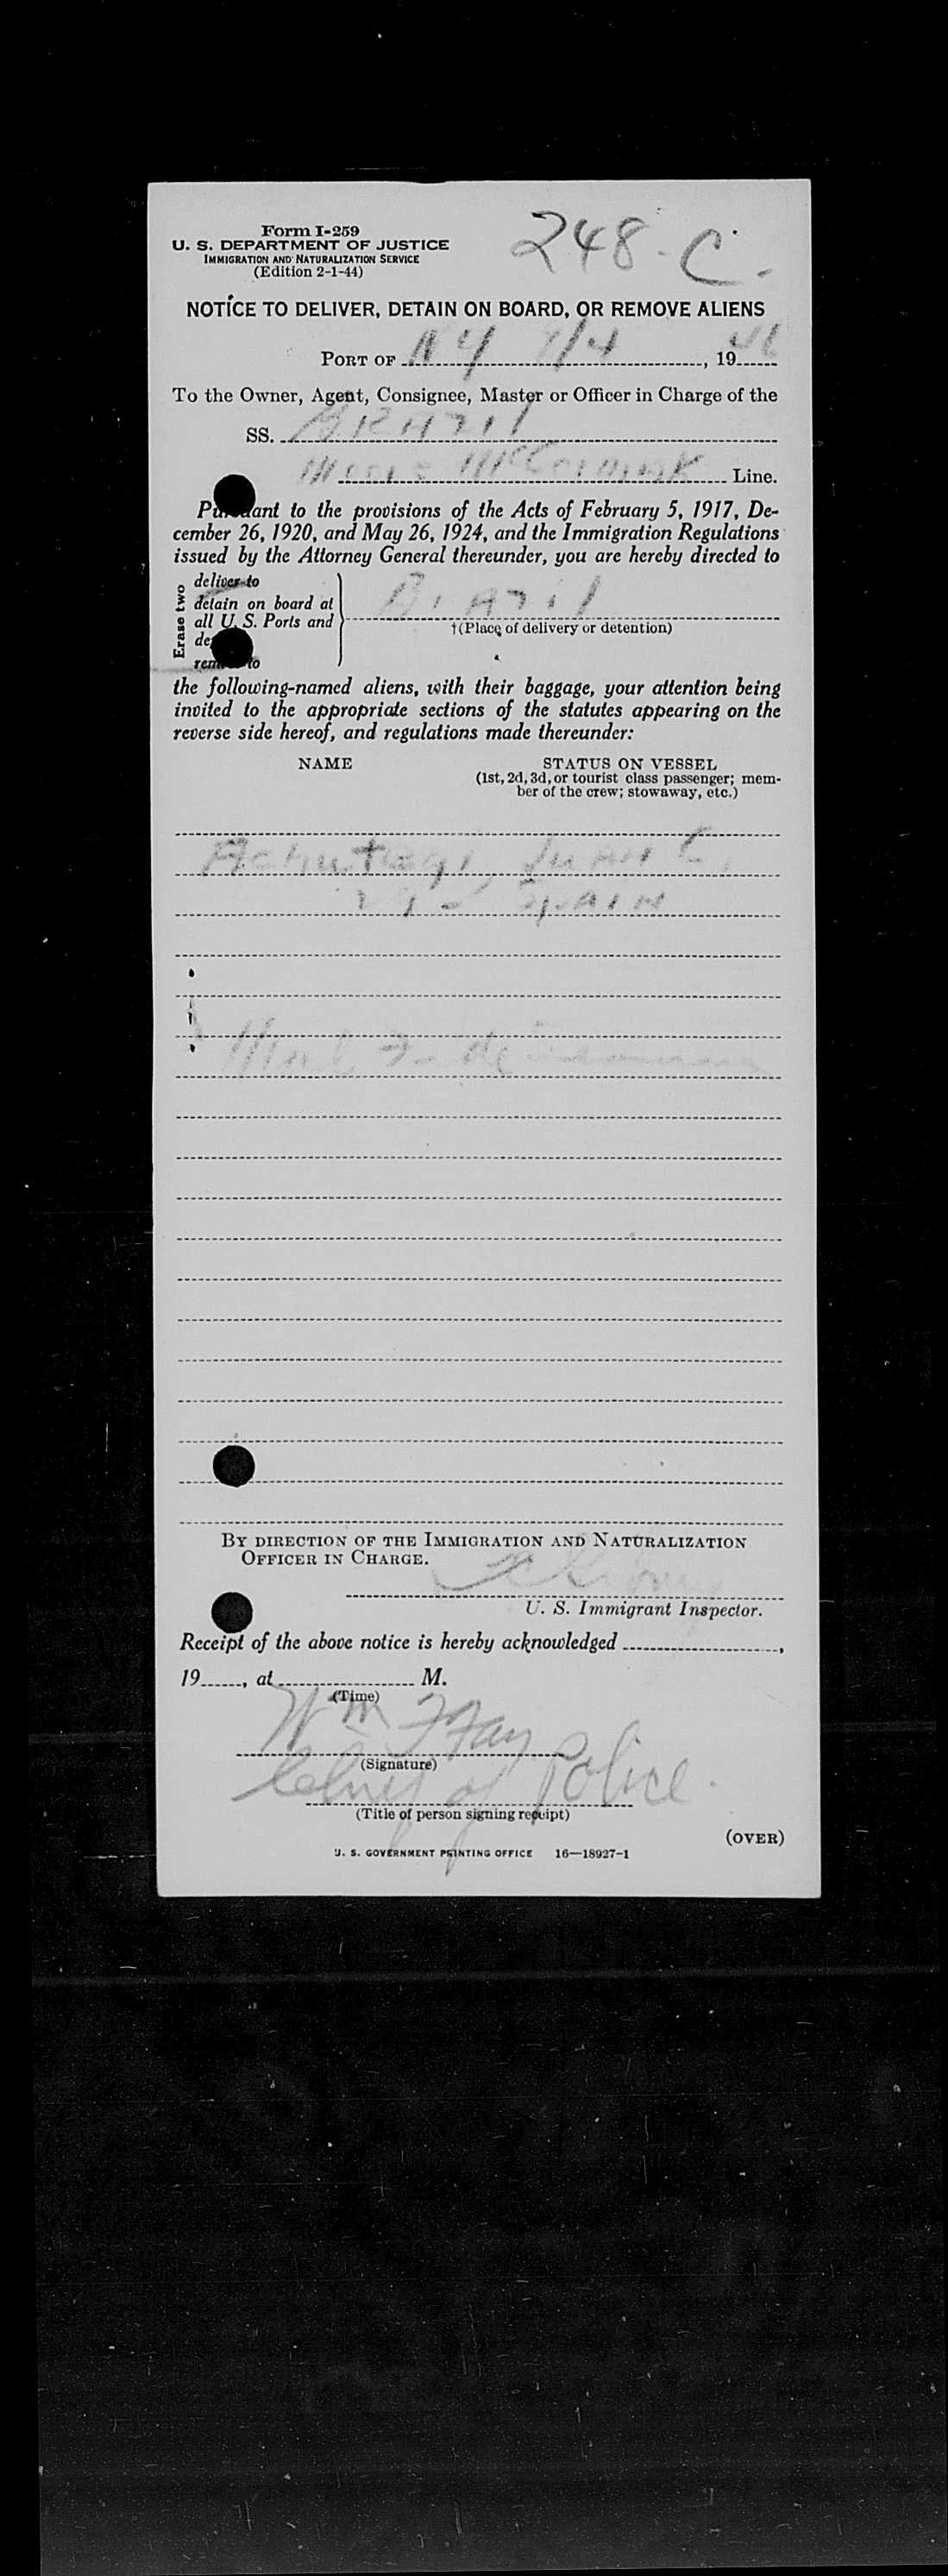 248-C.
Form I-259
U. S. DEPARTMENT OF JUSTICE
IMMIGRATION AND NATURALIZATION SERVICE
(Edition 2-1-44)
NOTICE TO DELIVER, DETAIN ON BOARD, OR REMOVE ALIENS
PORT OF NY /4, 1946
To the Owner, Agent, Consignee, Master or Officer in Charge of the
SS. BRAZIL
Moore McCormack Line.
Pursuant to the provisions of the Acts of February 5, 1917, De-
cember 26, 1920, and May 26, 1924, and the Immigration Regulations
issued by the Attorney General thereunder, you are hereby directed to
Erase two
deliver to
detain on board at
all U. S. Ports and
de
remove to
Brazil
†(Place of delivery or detention)
the following-named aliens, with their baggage, your attention being
invited to the appropriate sections of the statutes appearing on the
reverse side hereof, and regulations made thereunder:
NAME
STATUS ON VESSEL
(1st, 2d, 3d, or tourist class passenger; mem-
ber of the crew; stowaway, etc.)
Achutegi, Juan C.
SPAIN
BY DIRECTION OF THE IMMIGRATION AND NATURALIZATION
OFFICER IN CHARGE.
U. S. Immigrant Inspector.
Receipt of the above notice is hereby acknowledged,
19, at M.
(Time)
Wm F Fay
(Signature)
Chief of Police.
(Title of person signing receipt)
(OVER)
U. S. GOVERNMENT PRINTING OFFICE 16—18927-1